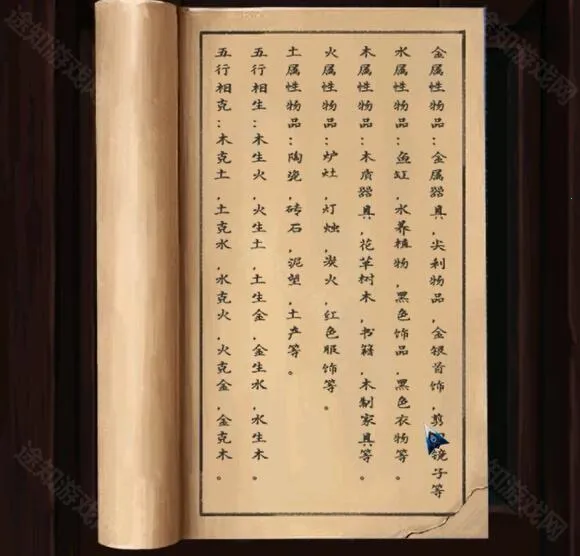 金属性物品:金属器具,尖利物品,金银首饰,剪 镜子等
水属性物品:鱼缸,水养植物,黑色饰品,黑色衣物等。
木属性物品:木质器具,花草树木,书籍,木制家具等。
火属性物品:炉灶,灯烛,炭火,红色服饰等。
土属性物品:陶瓷,砖石,泥塑,土产等。
五行相生:木生火,火生土,土生金,金生水,水生木。
五行相克:木克土,土克水,水克火,火克金,金克木。
途知游戏网
途知游戏网
途知游戏网
途知游戏网